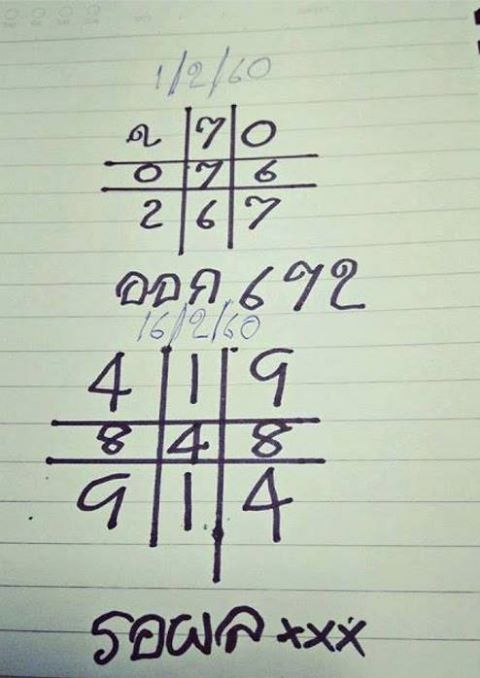 1/2/60
2 7 0
0 7 6
2 6 7
ออก 672
16/2/60
4 1 9
8 4 8
9 1 4
รอผล xxx